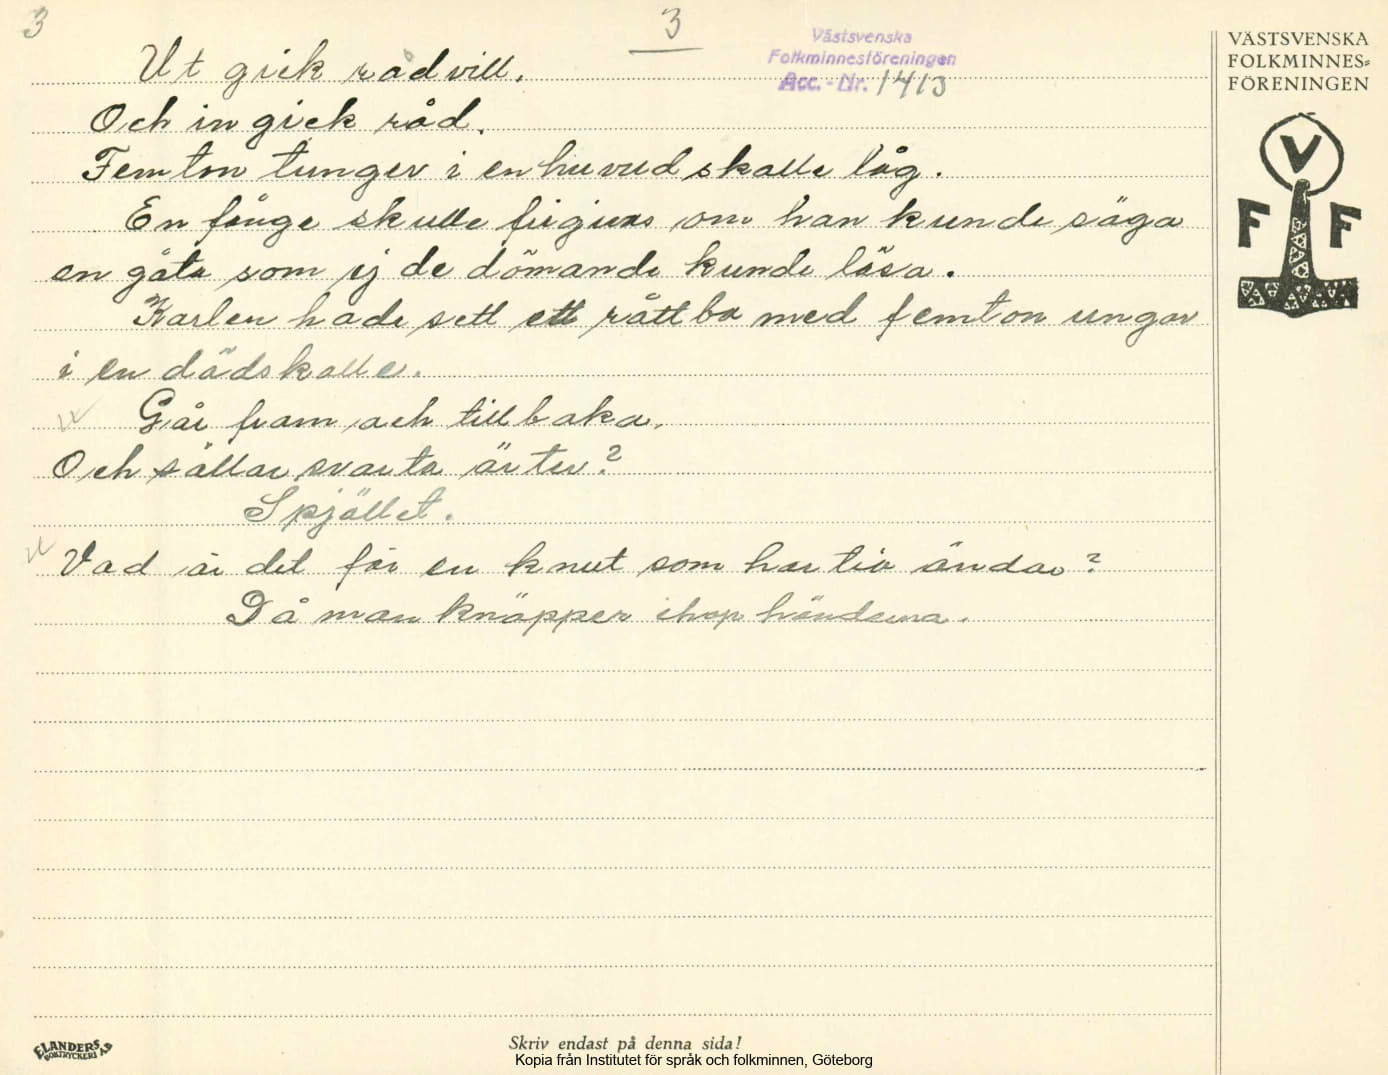 3
3
Västsvenska
Folkminnesföreningen
Acc. - Nr. 1413
VÄSTSVENSKA
FOLKMINNES=
FÖRENINGEN
V
F F
Ut gick rådvill.
Och in gick råd.
Femton tunger i en huvudskalle låg.
En fånge skulle frigivas om han kunde säga
en gåta som ej de dömande kunde lösa.
Karlen hade sett ett råttbo med femton ungar
i en dödskalle.
Går fram och tillbaka.
Och sållar svarta ärter?
Spjället.
Vad är det för en knut som har tio ändar?
Då man knäpper ihop händerna.
ELANDERS
BOKTRYCKERI A.B
Skriv endast på denna sida!
Kopia från Institutet för språk och folkminnen, Göteborg